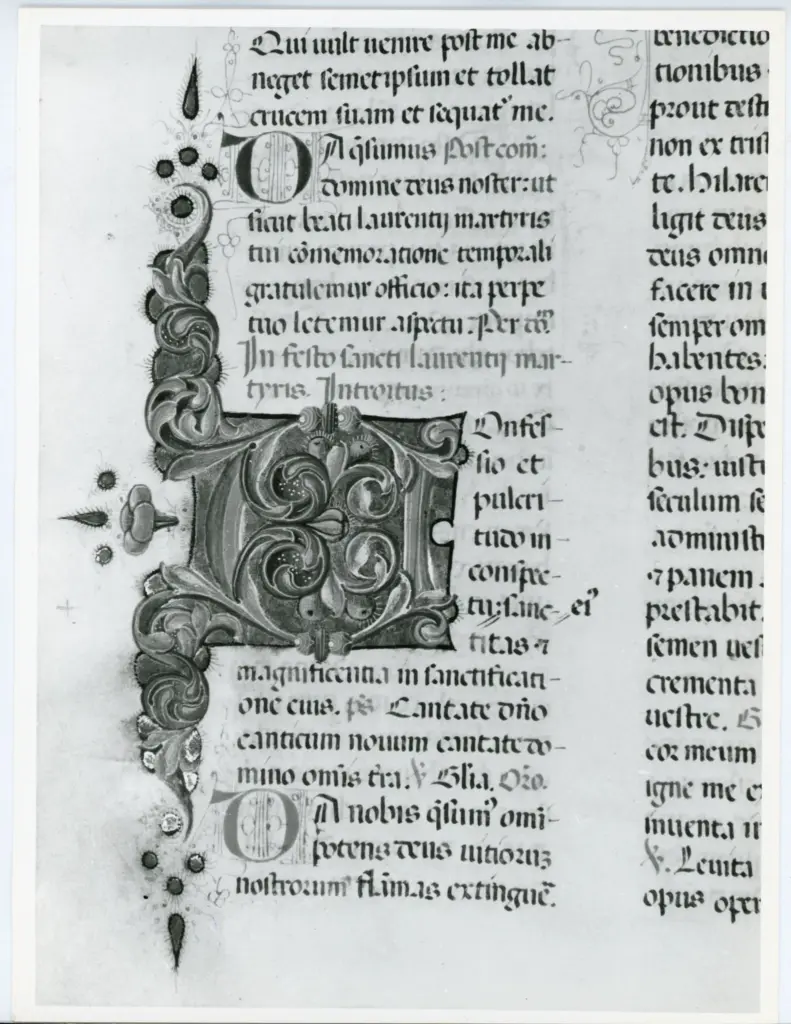 Qui uult uenire post me ab-
neget semetipsum et tollat
crucem suam et sequat' me.
DA q̃sumus Postcom̃:
domine deus noster: ut
sicut beati laurentij martyris
tui cõmemoratione temporali
gratulemur officio: ita perpe
tuo letemur aspectu. Per
In festo sancti laurentij mar-
tyris. Introitus:
COnfes-
sio et
pulcri-
tudo in-
conspe-
tu: sanc- ei'
titas ⁊
magnificentia in sanctificati-
one eius. ps̃ Cantate dño
canticum nouum cantate do-
mino omĩs tr̃a. ℣ Glia. Oro.
DA nobis q̃sum' omi-
potens deus uitioꝝ
nostrorum flãmas extinguẽ.
benedictio
tionibus
prout desti
non ex trist
te. hilare
ligit deus
deus omne
facere in
semper om
habentes:
opus bon
est. Dispe
bus: iusti
seculum se
administ
⁊ panem
prestabit
semen ues
crementa
uestre. G
cor meum
igne me e
inuenta i
℣. Leuita
opus oper